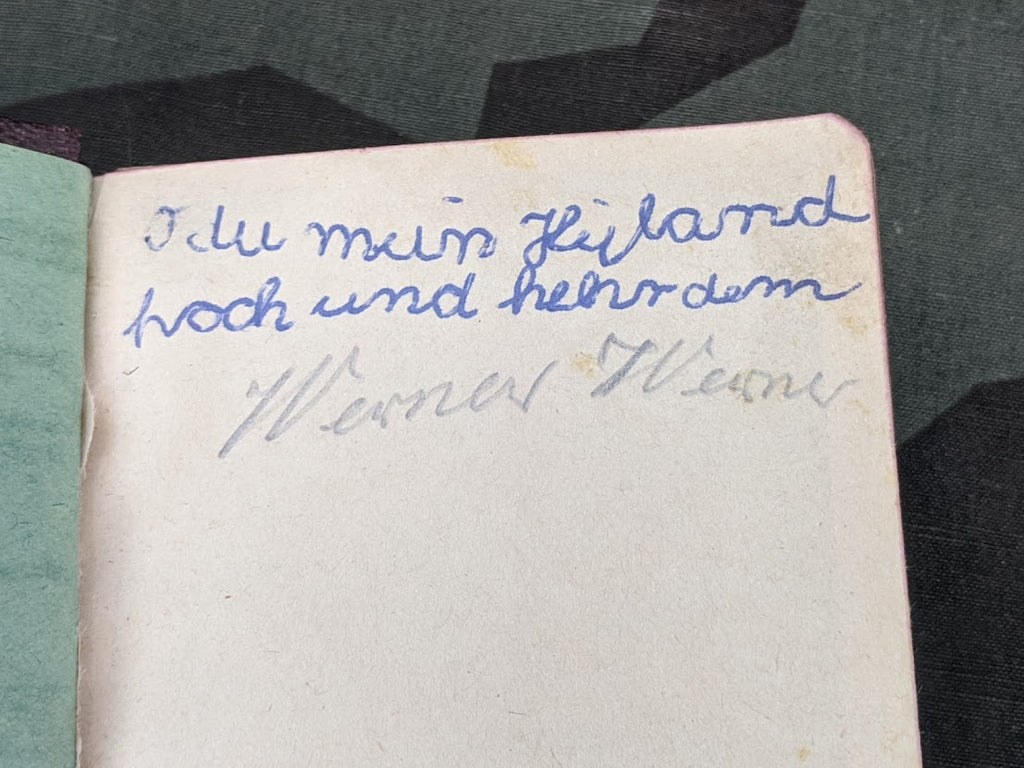 O du mein Heiland
hoch und hehr dem
Werner Werner